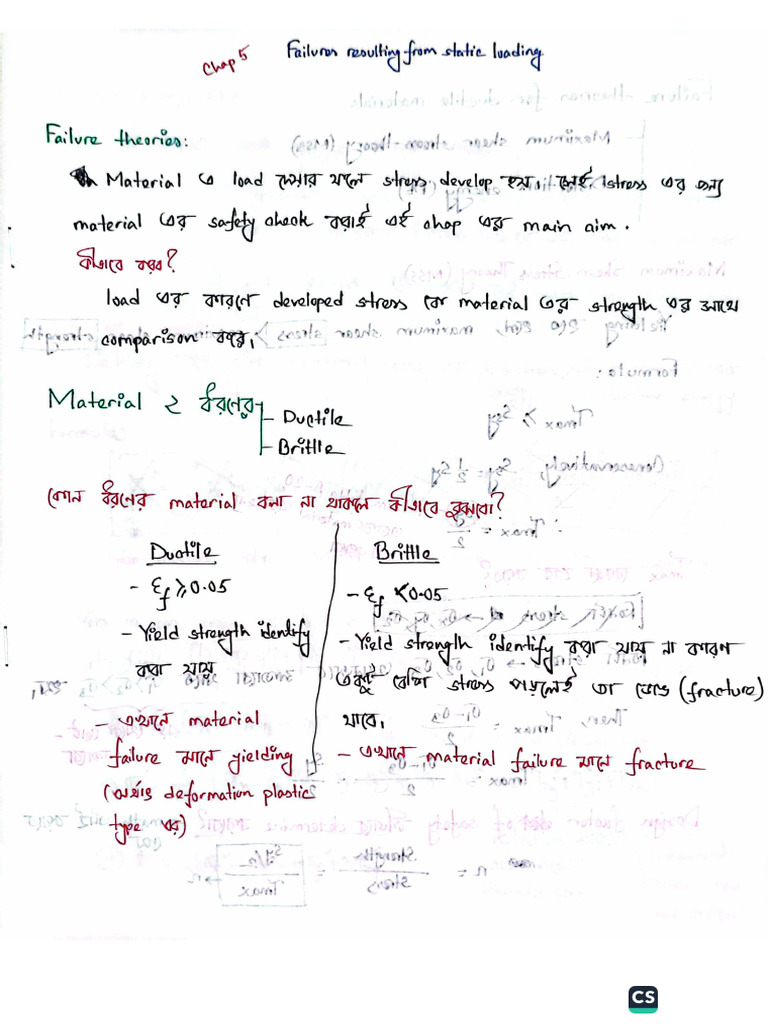 Chap 5 Failures resulting from static loading
Failure theories:
Material এ load দেয়ার ফলে stress develop হয়। সেই stress এর জন্য
material এর safety check করাই এই chap এর main aim.
কীভাবে করব?
load এর কারণে developed stress কে material এর strength এর সাথে
comparison করে।
Material ২ ধরণের
- Ductile
- Brittle
কোন ধরণের material বলা না থাকলে কীভাবে বুঝবো?
Ductile
- εf ≥ 0.05
- Yield strength identify
করা যায়
- এখানে material
failure মানে yielding
(অর্থাৎ deformation plastic
type এর)
Brittle
- εf < 0.05
- Yield strength identify করা যায় না কারণ
একটু বেশি stress পড়লেই তা ভেঙে (fracture)
যাবে।
- এখানে material failure মানে fracture
CS